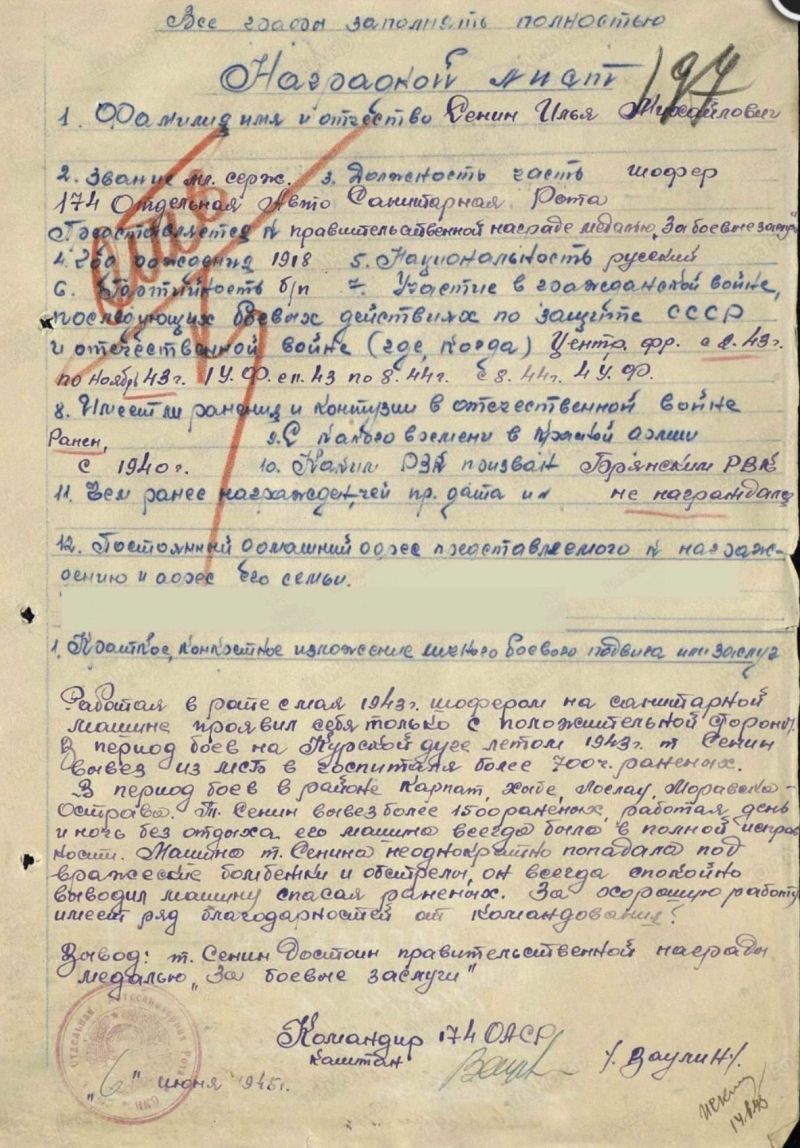 Все графы заполнять полностью
Наградной лист
194
1. Фамилия имя и отчество Сенин Илья Михайлович
2. Звание мл. серж. 3. Должность часть шофер
174 Отдельная Авто Санитарная Рота
Представляется к правительственной награде медалью „За боевые заслуги"
4. Год рождения 1918 5. Национальность русский
6. Партийность б/п 7. Участие в гражданской войне,
последующих боевых действиях по защите СССР
и отечественной войне (где, когда) Центр. фр. с 2.43г.
по ноябрь 43г. 1 У.Ф. с 11.43 по 8.44г. с 8.44г. 4 У.Ф.
8. Имеет ли ранения и контузии в отечественной войне
Ранен, 9. С какого времени в Красной армии
с 1940г. 10. Каким РВК призван Брянским РВК
11. Чем ранее награжден, чей пр. дата и № не награждался
12. Постоянный домашний адрес представляемого к награж-
дению и адрес его семьи.
1. Краткое, конкретное изложение личного боевого подвига или заслуг
Работая в роте с мая 1943г. шофером на санитарной
машине проявил себя только с положительной стороны.
В период боев на Курской дуге летом 1943г. т. Сенин
вывез из в госпиталя более 700ч. раненых.
В период боев в районе Карпат, Хыбе, Лослау, Моравска-
Острава. Т. Сенин вывез более 1500 раненых, работая день
и ночь без отдыха его машина всегда была в полной исправ
ности. Машина т. Сенина неоднократно попадала под
вражеские бомбежки и обстрелы, он всегда спокойно
выводил машину спасая раненых. За хорошую работу
имеет ряд благодарностей от командования.
Вывод: т. Сенин Достоин правительственной награды
медалью „За боевые заслуги"
Командир 174 ОАСР
капитан /Ваулин/.
„6" июня 1945г.